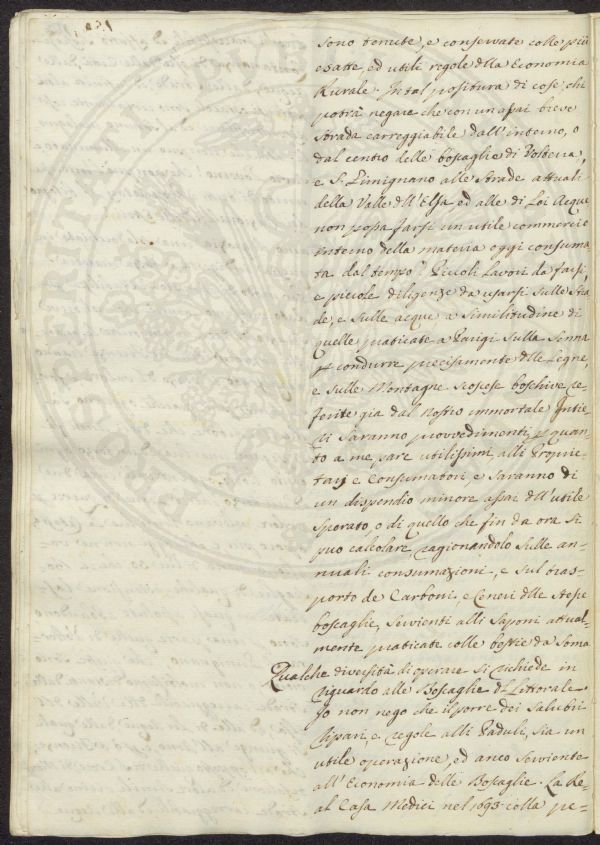 sono tenute, e conservate colle più
esatte, ed utili regole dlla Economia
Rurale. In tal positura di cose, chi
potrà negare che con un assai breve
Strada carreggiabile dall'interno, o
dal centro delle boscaglie di Volterra,
e S. Gimignano alle Strade attuali
della Valle dll'Elsa ed alle di Loi Acque
non possa farsi un utile commercio
interno della materia oggi consuma
ta dal tempo? Piccoli Lavori da farsi,
e piccole diligenze da usarsi sulle Stra
de, e sulle acque a similitudine di
quelle praticate a Parigi sulla Senna
p condurre precisamente dlle Legne,
e sulle Montagne scoscese boschive re
ferite gia dal nostro immortale
ri saranno provvedimenti, p quan
to a me pare utilissimi alli Proprie
tarj e Consumatori, e saranno di
un dispendio minore assai dll'utile
sperato, o di quello che fin da ora si
può calcolare ragionandolo sulle an=
nuali consumazioni, e sul tras=
porto de Carboni, e Ceneri dlle stesse
boscaglie, servienti alli Saponi attual=
mente praticate colle bestie da Soma
Qualche diversità di operare si richiede in
riguardo alle Boscaglie dl Littorale.
Io non nego che il porre dei Salubri
Ripari, e regole alli Paduli, sia un
utile operazione, ed anco serviente
all'Economia delle Boscaglie. La Re=
al Casa Medici nel 1693 colla pe=